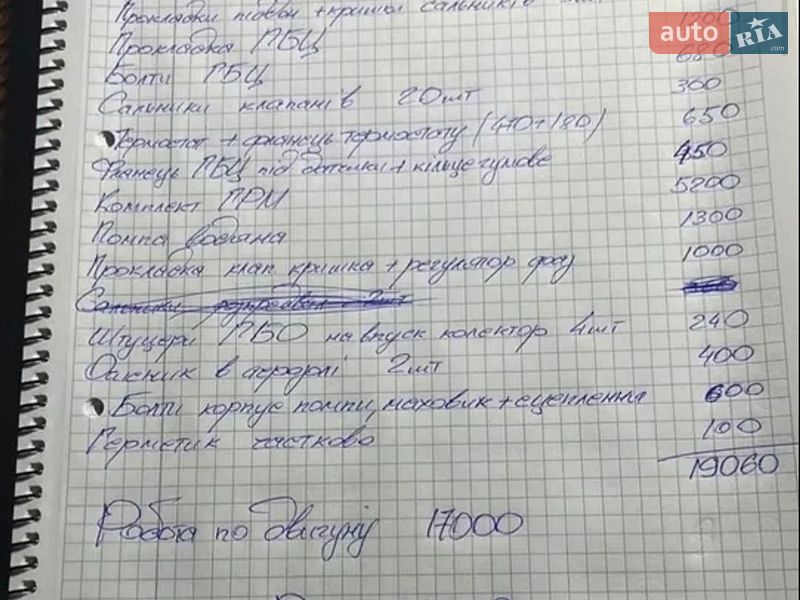 Прокладки піддон + кришки сальників 1200
Прокладка ГБЦ 680
Болти ГБЦ 360
Сальники клапанів 20шт 650
Термостат + фланець термостату (470+180)
Фланець ГБЦ під датчики + кільце гумове 450
Комплект ГРМ 5200
Помпа водяна 1300
Прокладка клап. кришка + регулятор фаз 1000
Сальники 2шт
Штуцери ГБО на впуск колектор 4шт 240
2шт 400
Болти корпус помпи, маховик + сцеплення 600
Герметик частково 100
19060
Робота по двигуну 17000
auto RIA.com